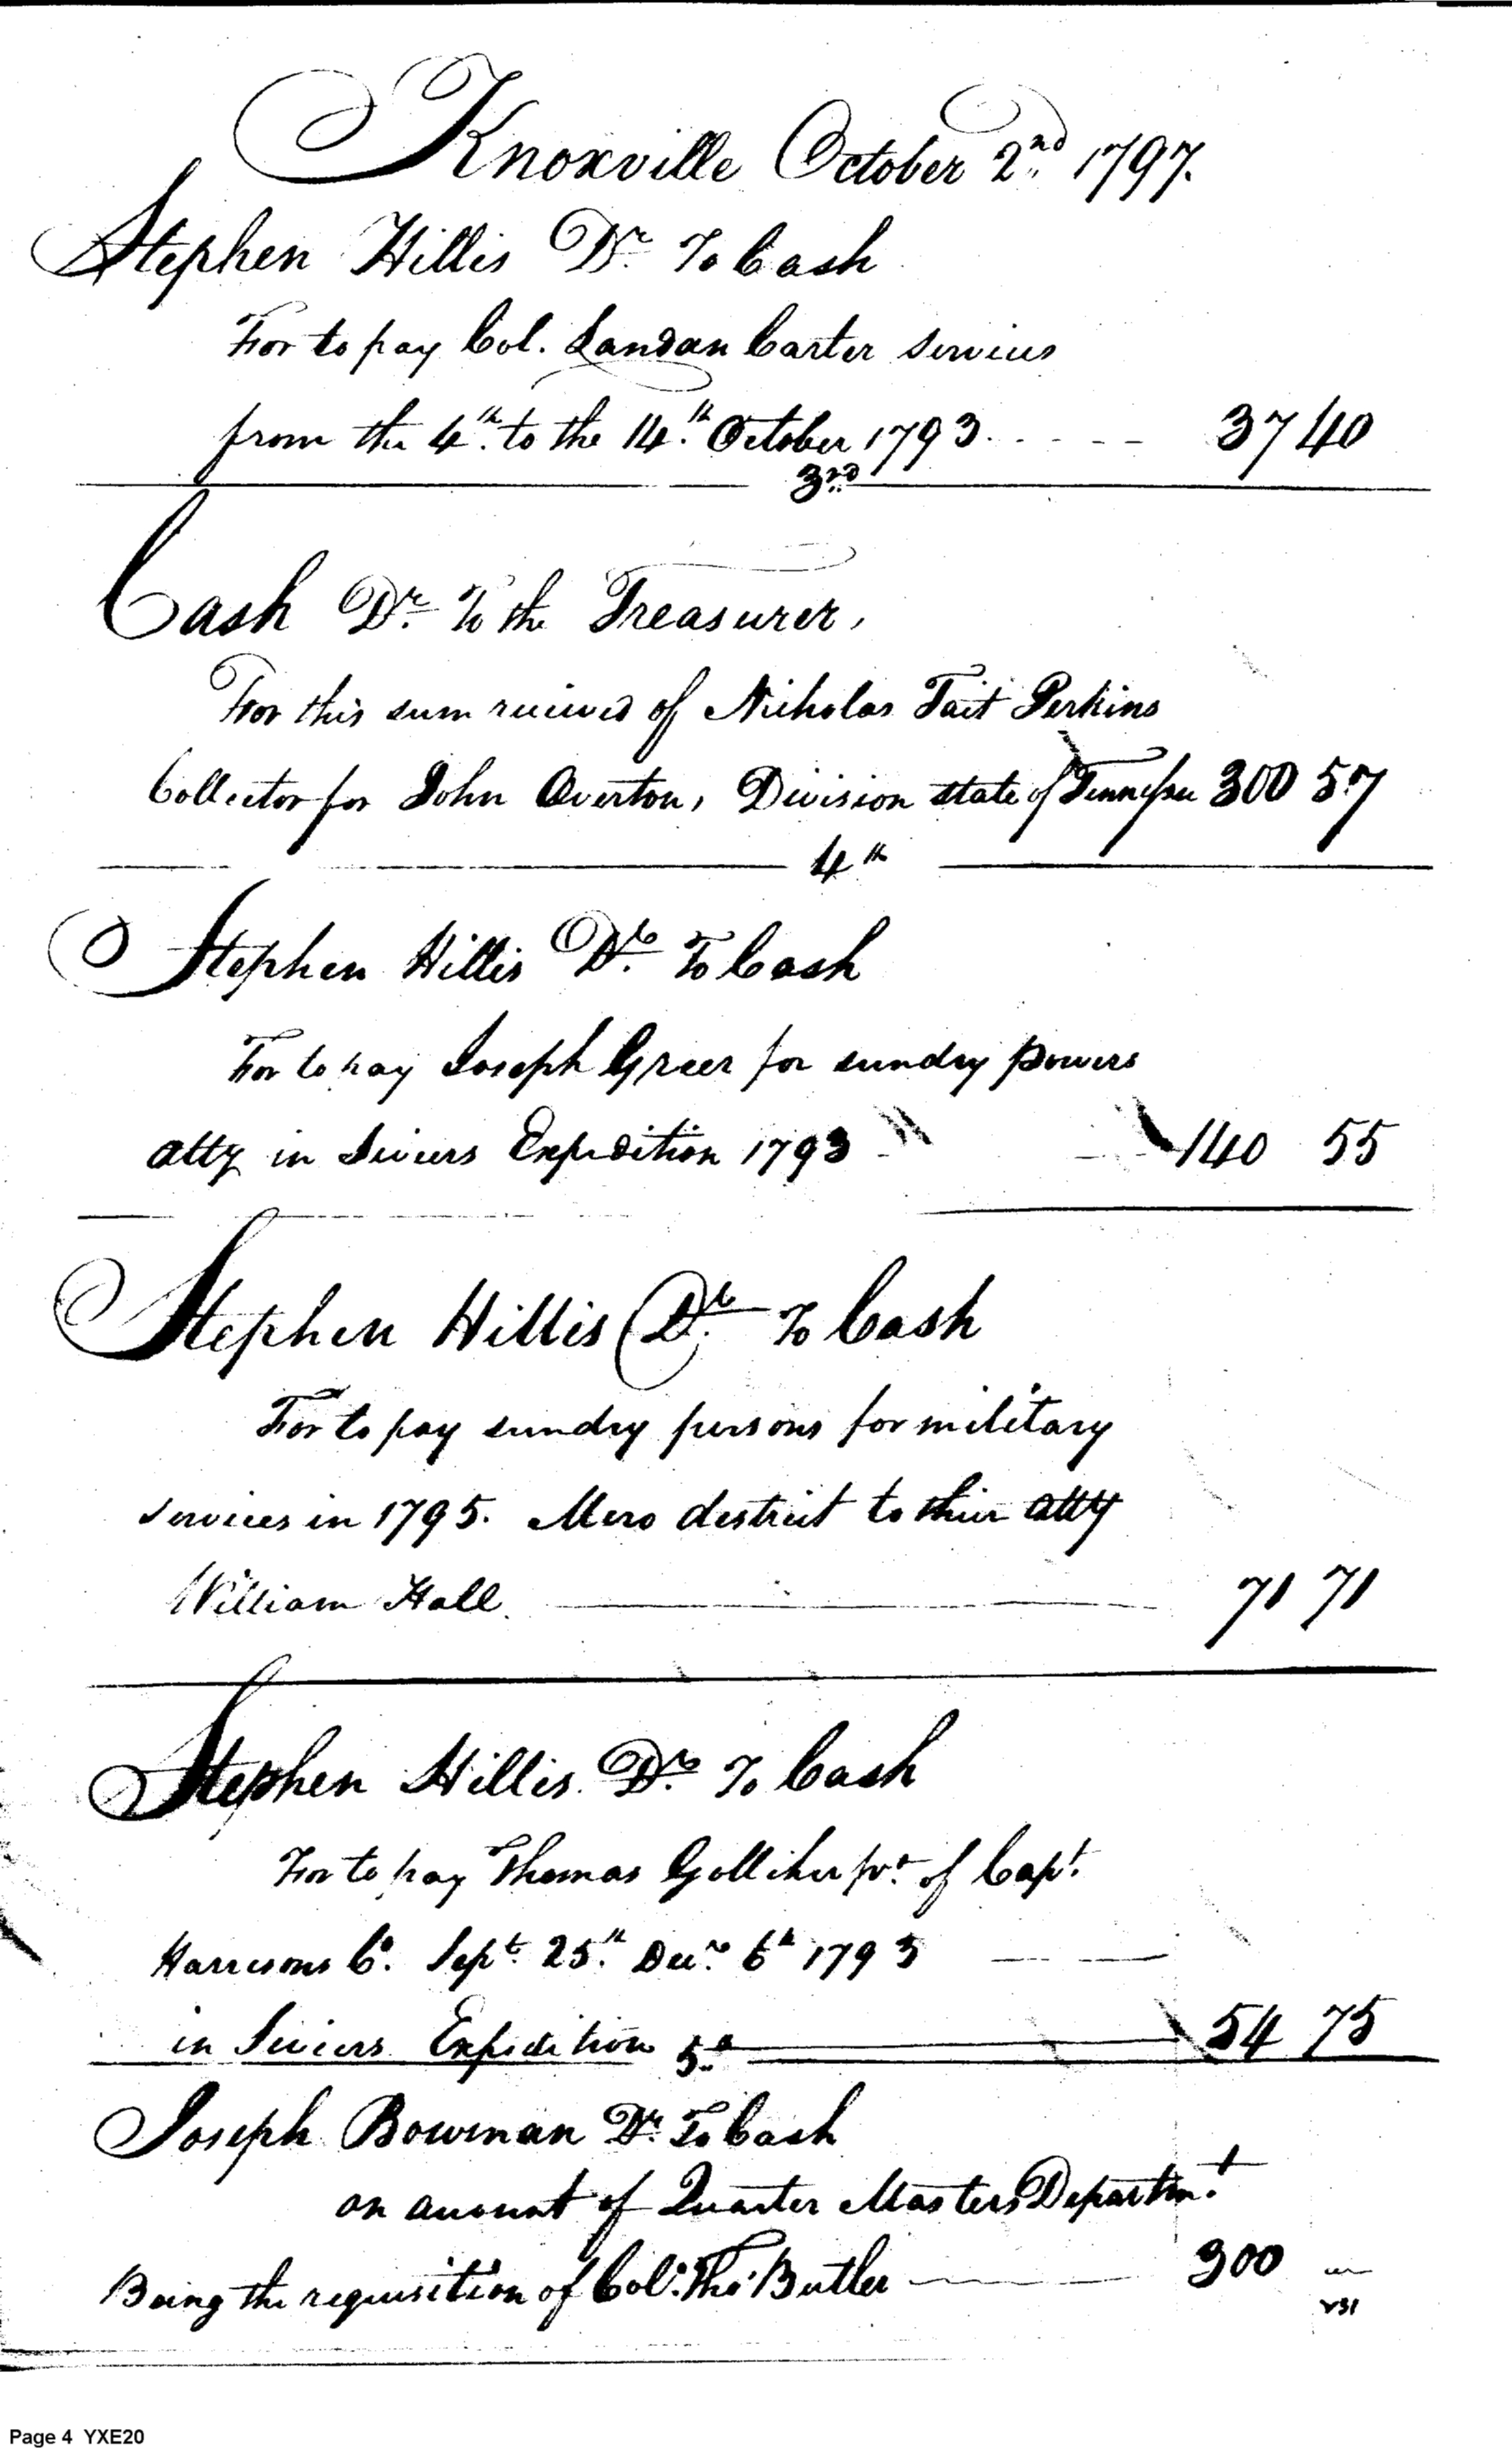 Knoxville October 2nd 1797.
Stephen Hillis Dr. To Cash
For to pay Col. Landan Carter services
from the 4th. to the 14th. October 1793. 37 40
3rd
Cash Dr. To the Treasurer,
For this sum recieved of Nicholas Tait Perkins
Collector for John Overton, Division state of Tennessee 300 57
4th
Stephen Hillis Dr. To Cash
For to pay Joseph Greer for sundry powers
atty in Seviers Expedition 1793 140 55
Stephen Hillis Dr. To Cash
For to pay sundry persons for military
services in 1795. Mero destrict to thier atty
William Hall. 71 71
Stephen Hillis Dr. To Cash
For to pay Thomas Golliher pvt. of Capt.
Harrisons Co. Sept. 25th. Decr. 6th 1793
in Seviers Expedition 54 75
5th
Joseph Bowman Dr. To Cash
on account of Quarter Masters Departmt.
Being the requisition of Col. Tho. Butler 300
Page 4 YXE20